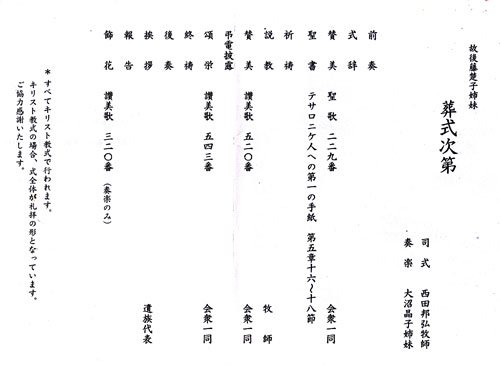 故後藤楚子姉妹
葬式次第
司式 西田邦弘牧師
奏楽 大沼晶子姉妹
前奏
式辞
賛美 聖歌 二二九番 会衆一同
聖書 テサロニケ人への第一の手紙 第五章十六〜十八節
祈祷
説教 牧師
賛美 讃美歌 五二〇番 会衆一同
弔電披露
頌栄 讃美歌 五四三番 会衆一同
終祷
後奏
挨拶 遺族代表
報告
飾花 讃美歌 三二〇番 (奏楽のみ)
*すべてキリスト教式で行われます。
キリスト教式の場合、式全体が礼拝の形となっています。
ご協力感謝いたします。